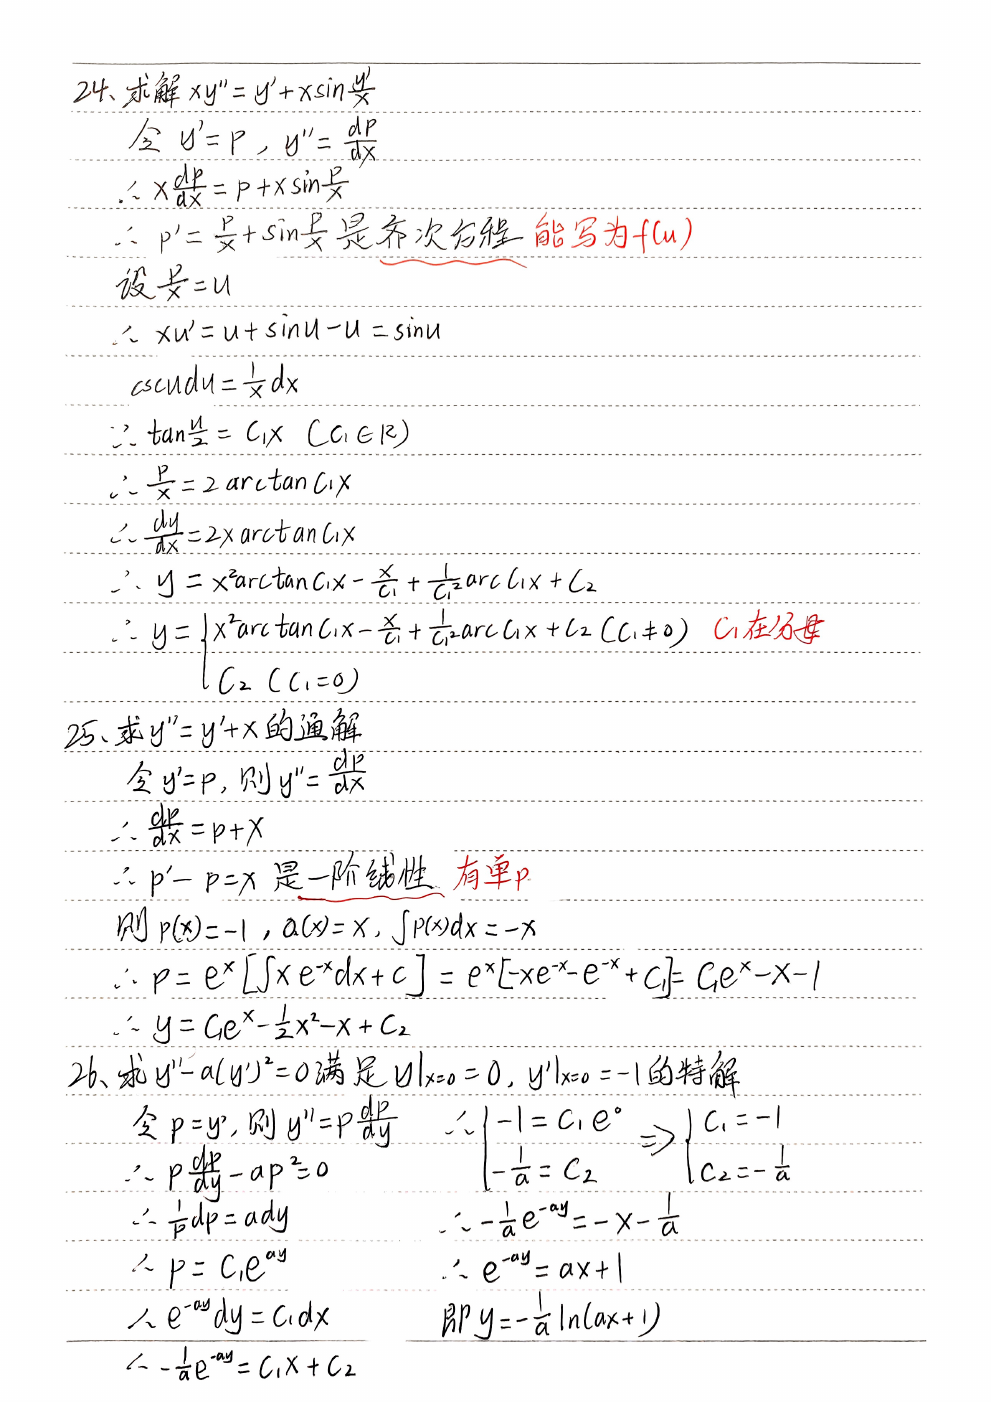 24、求解 xy''= y'+xsin y'/x
令 y'=p , y''= dp/dx
∴ x dp/dx = p+xsin p/x
∴ p'= p/x + sin p/x 是齐次方程 能写为f(u)
设 p/x = u
∴ xu'= u+sinu-u = sinu
cscudu = 1/x dx
∴ tan u/2 = C₁x (C₁∈R)
∴ p/x = 2 arctan C₁x
∴ dy/dx = 2x arctan C₁x
∴ y = x²arctan C₁x - x/C₁ + 1/C₁² arc C₁x + C₂
∴ y = { x²arctan C₁x - x/C₁ + 1/C₁² arc C₁x + C₂ (C₁≠0) C₁在分母
C₂ (C₁=0)
25、求 y''= y'+x 的通解
令 y'=p, 则 y''= dp/dx
∴ dp/dx = p+x
∴ p'-p=x 是一阶线性 有单p
则 p(x)=-1 , Q(x)=x, ∫p(x)dx=-x
∴ p = eˣ[∫x e⁻ˣdx+c] = eˣ[-xe⁻ˣ-e⁻ˣ+C₁]= C₁eˣ-x-1
∴ y = C₁eˣ - 1/2 x² - x + C₂
26、求 y''-a(y')²=0 满足 y|x=0 = 0, y'|x=0 = -1 的特解
令 p=y', 则 y''=p dp/dy
∴ p dp/dy - ap²=0
∴ 1/p dp = ady
∴ p = C₁e^ay
∴ e^-ay dy = C₁dx
∴ -1/a e^-ay = C₁x + C₂
∴ { -1 = C₁e⁰ => { C₁ = -1
-1/a = C₂ C₂ = -1/a
∴ -1/a e^-ay = -x - 1/a
∴ e^-ay = ax+1
即 y = -1/a ln(ax+1)